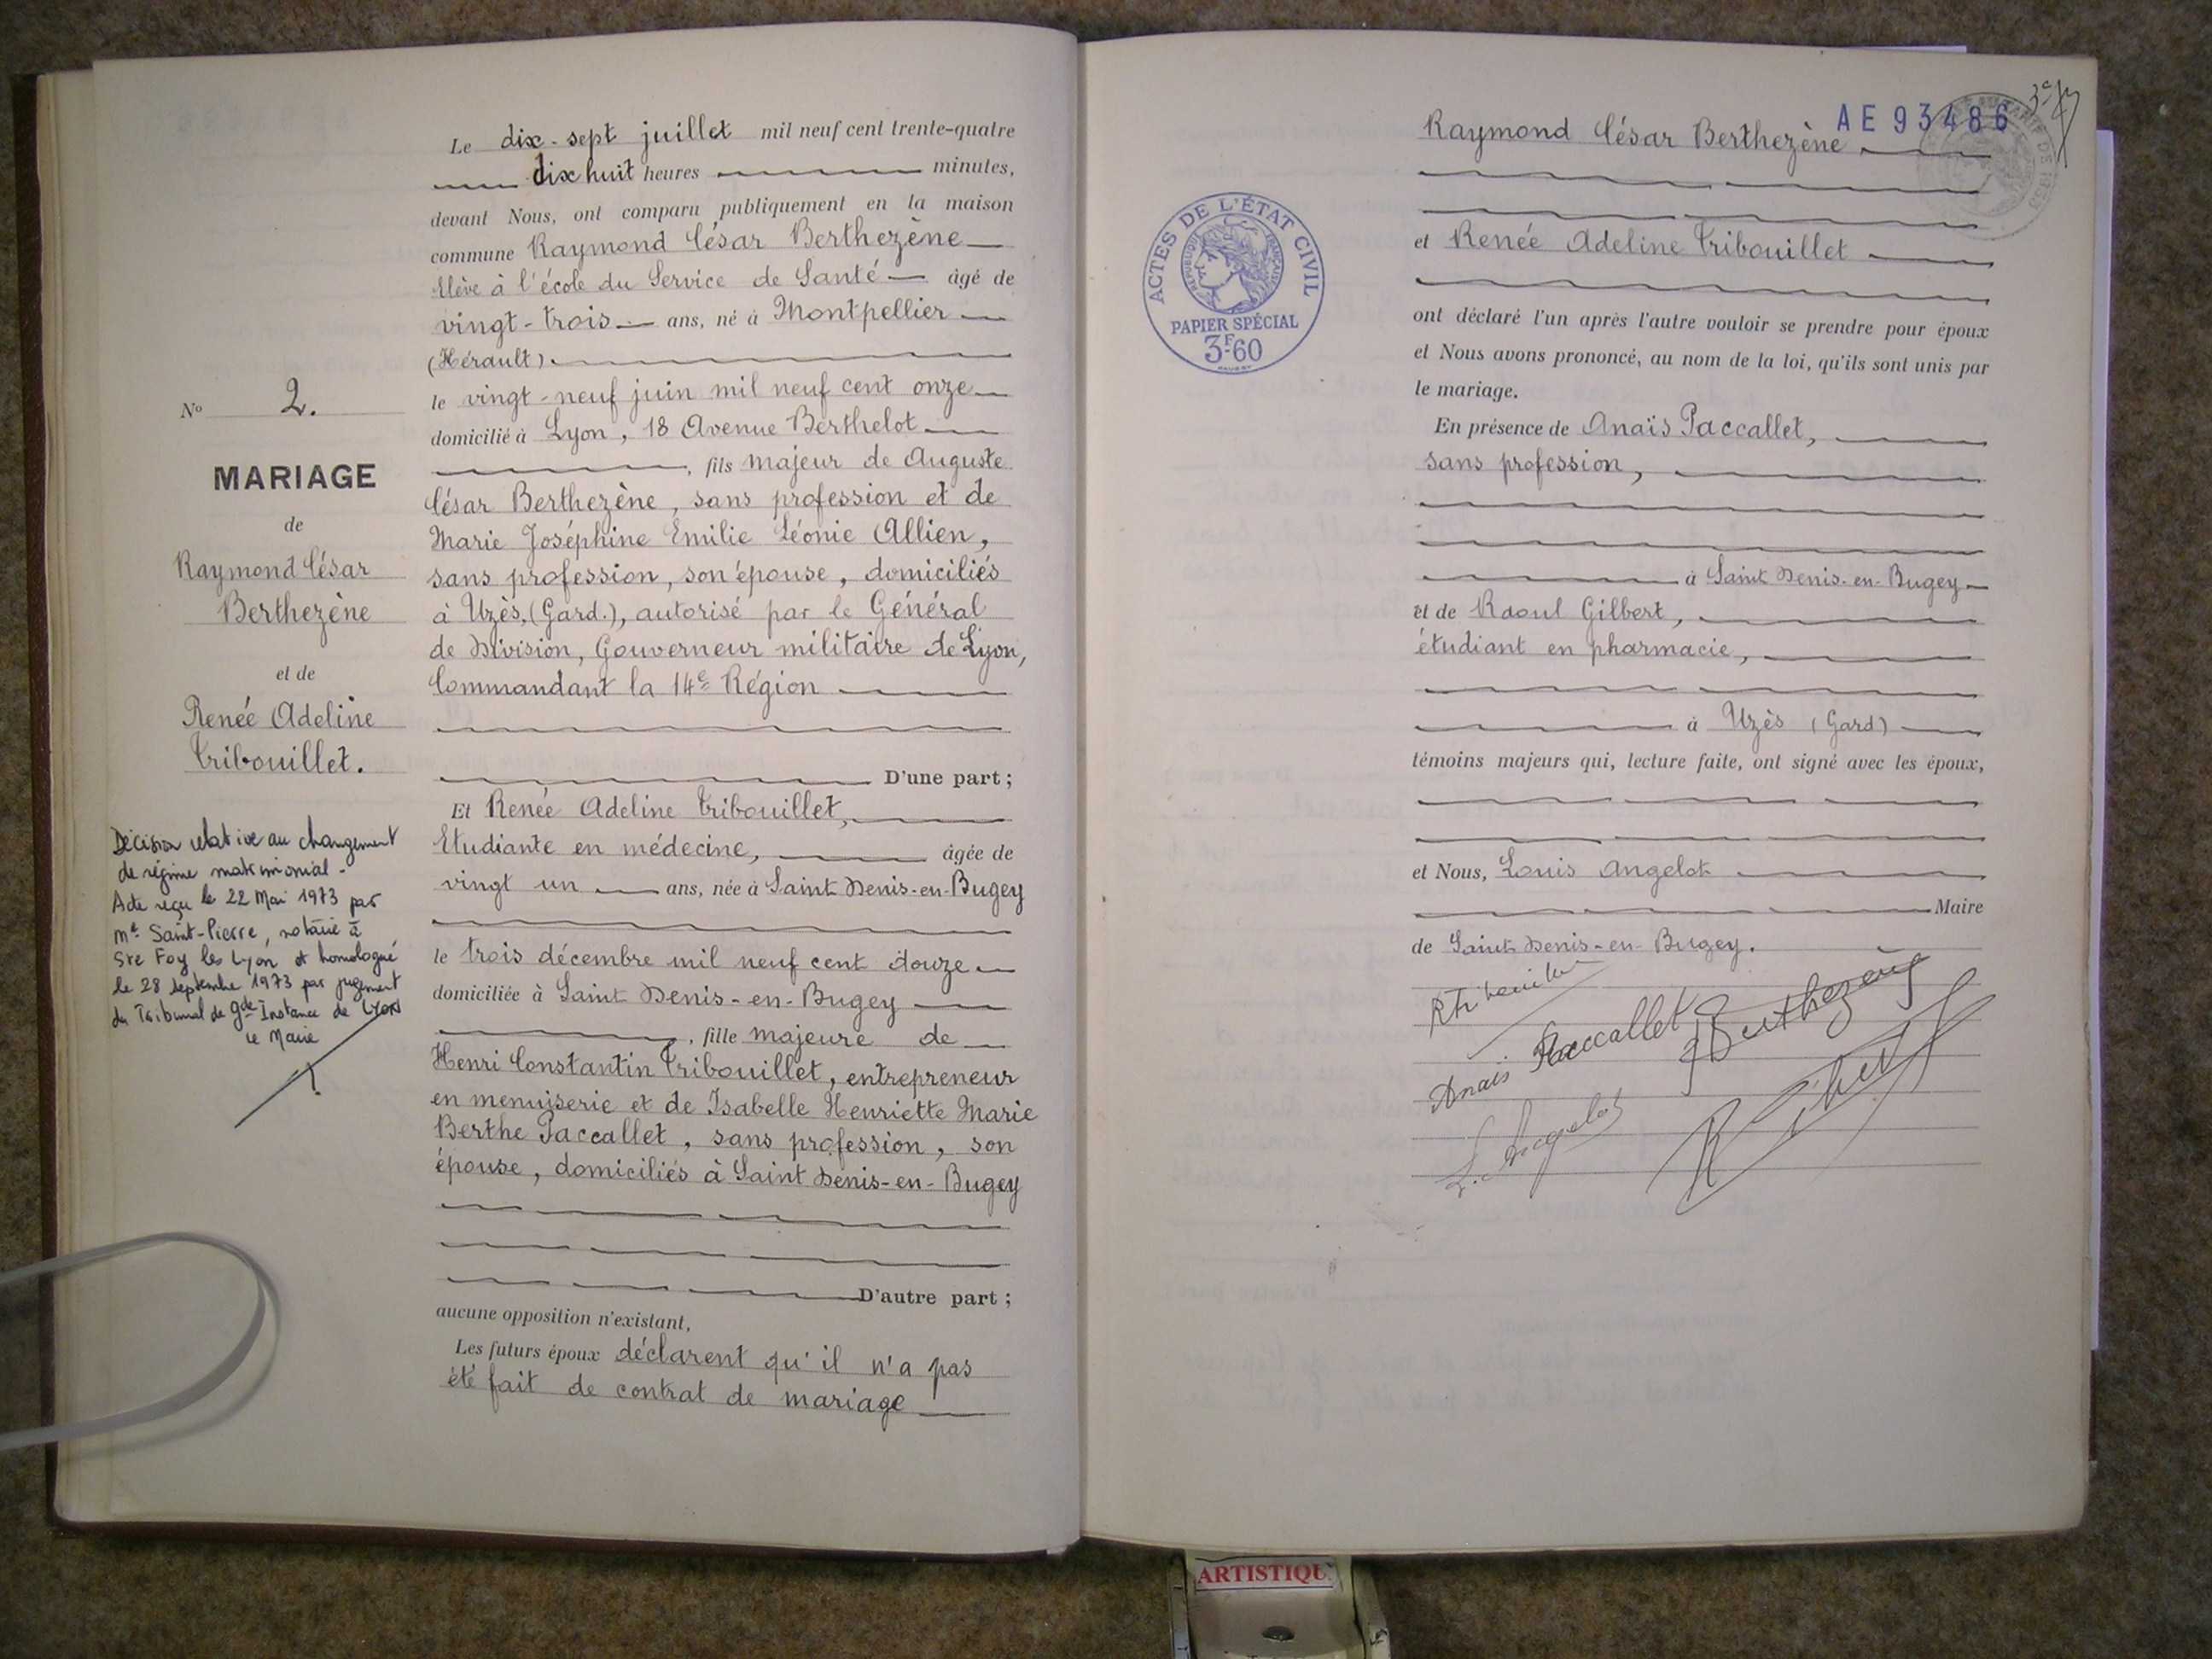 Le dix-sept juillet mil neuf cent trente-quatre
dix huit heures minutes,
devant Nous, ont comparu publiquement en la maison
commune Raymond César Berthezène
Elève à l'école du Service de Santé âgé de
vingt-trois ans, né à Montpellier
(Hérault)
le vingt-neuf juin mil neuf cent onze
domicilié à Lyon, 18 Avenue Berthelot
, fils majeur de Auguste
César Berthezène, sans profession et de
Marie Joséphine Emilie Léonie Allien,
sans profession, son épouse, domiciliés
à Uzès, (Gard.), autorisé par le Général
de Division, Gouverneur militaire de Lyon,
Commandant la 14e Région
D'une part ;
Et Renée Adeline Tribouillet,
Etudiante en médecine, âgée de
vingt un ans, née à Saint Denis-en-Bugey
le trois décembre mil neuf cent douze
domiciliée à Saint Denis-en-Bugey
, fille majeure de
Henri Constantin Tribouillet, entrepreneur
en menuiserie et de Isabelle Henriette Marie
Berthe Paccallet, sans profession, son
épouse, domiciliés à Saint Denis-en-Bugey
D'autre part ;
aucune opposition n'existant,
Les futurs époux déclarent qu'il n'a pas
été fait de contrat de mariage
No 2.
MARIAGE
de
Raymond César
Berthezène
et de
Renée Adeline
Tribouillet.
Décision relative au changement
de régime matrimonial -
Acte reçu le 22 Mai 1973 par
Me Saint-Pierre, notaire à
Ste Foy les Lyon et homologué
le 28 septembre 1973 par jugement
du Tribunal de gde Instance de Lyon
Le Maire
AE 93486
Raymond César Berthezène
et Renée Adeline Tribouillet
ont déclaré l'un après l'autre vouloir se prendre pour époux
et Nous avons prononcé, au nom de la loi, qu'ils sont unis par
le mariage.
En présence de Anaïs Paccallet,
sans profession,
à Saint Denis-en-Bugey
et de Raoul Gilbert,
étudiant en pharmacie,
à Uzès (Gard)
témoins majeurs qui, lecture faite, ont signé avec les époux,
et Nous, Louis Angelot
Maire
de Saint Denis-en-Bugey.
RTribouillet
Berthezène
Anais Paccallet
L. Angelot
ACTES DE L'ÉTAT CIVIL
RÉPUBLIQUE FRANÇAISE
PAPIER SPÉCIAL
3F60
ARTISTIQU